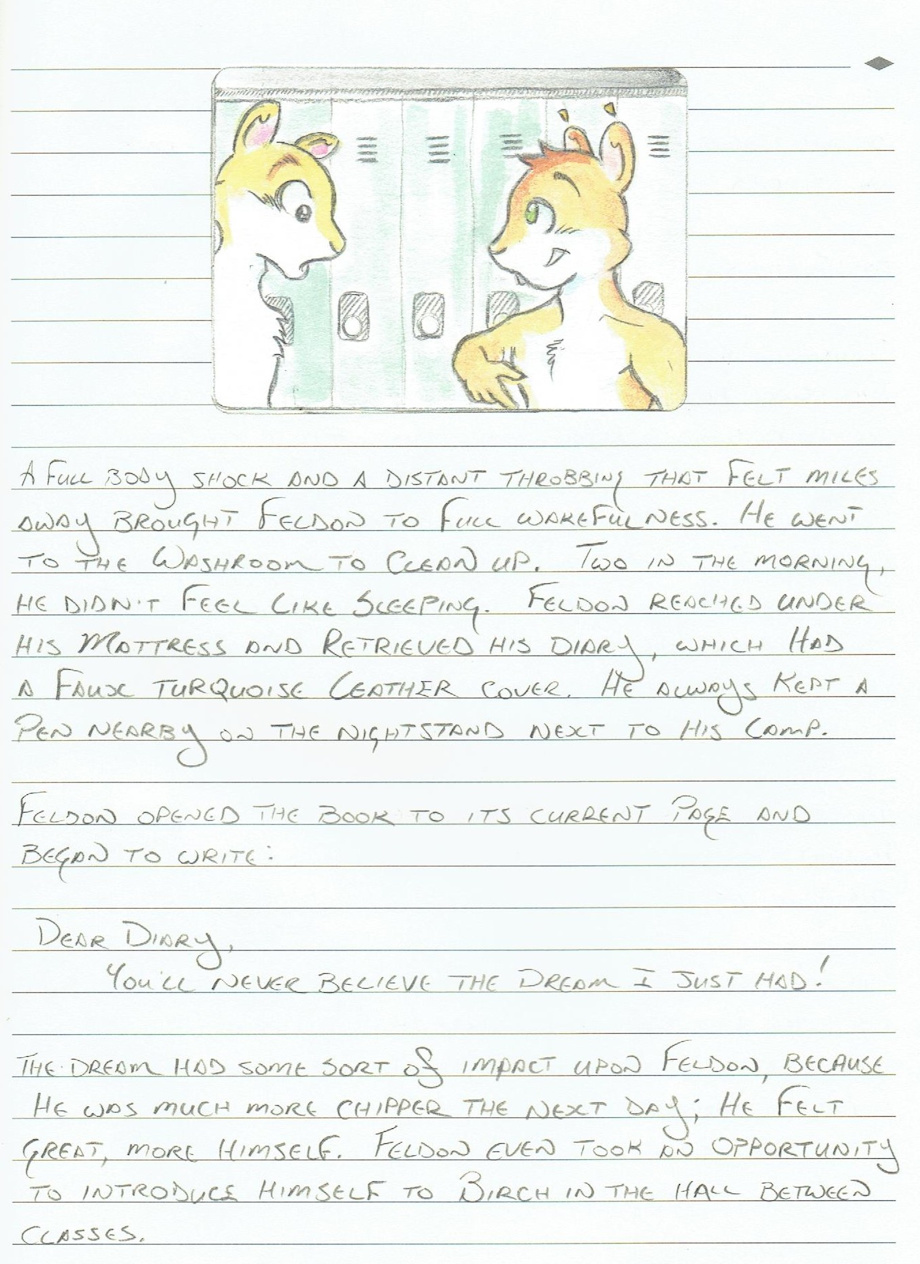 A FULL BODY SHOCK AND A DISTANT THROBBING THAT FELT MILES
AWAY BROUGHT FELDON TO FULL WAKEFULNESS. HE WENT
TO THE WASHROOM TO CLEAN UP. TWO IN THE MORNING,
HE DIDN'T FEEL LIKE SLEEPING. FELDON REACHED UNDER
HIS MATTRESS AND RETRIEVED HIS DIARY, WHICH HAD
A FAUX TURQUOISE LEATHER COVER. HE ALWAYS KEPT A
PEN NEARBY ON THE NIGHTSTAND NEXT TO HIS LAMP.
FELDON OPENED THE BOOK TO ITS CURRENT PAGE AND
BEGAN TO WRITE:
DEAR DIARY,
YOU'LL NEVER BELIEVE THE DREAM I JUST HAD!
THE DREAM HAD SOME SORT OF IMPACT UPON FELDON, BECAUSE
HE WAS MUCH MORE CHIPPER THE NEXT DAY; HE FELT
GREAT, MORE HIMSELF. FELDON EVEN TOOK AN OPPORTUNITY
TO INTRODUCE HIMSELF TO BIRCH IN THE HALL BETWEEN
CLASSES.